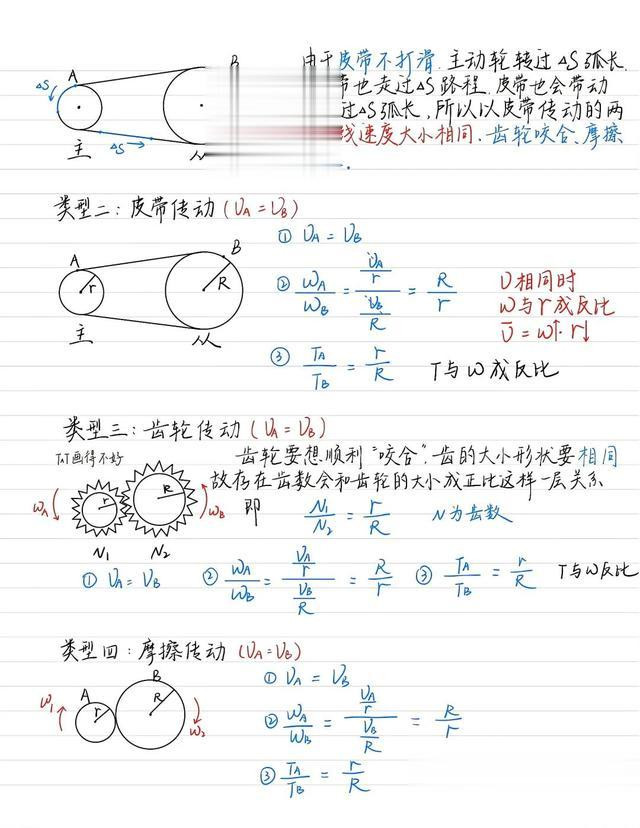 由于皮带不打滑.主动轮转过ΔS弧长.
A
B
ΔS
带也走过ΔS路程.皮带也会带动
过ΔS弧长,所以以皮带传动的两
主
ΔS
从
线速度大小相同.齿轮咬合、摩擦
类型二:皮带传动(υA=υB)
A
B
r
R
主
从
① υA=υB
② ωA/ωB = (υA/r)/(υB/R) = R/r
υ相同时
ω与r成反比
υ̅=ω↑·r↓
③ TA/TB = r/R
T与ω成反比
类型三:齿轮传动(υA=υB)
TAT画得不好
齿轮要想顺利"咬合".齿的大小形状要相同
故存在齿数会和齿轮的大小成正比这样一层关系
ωA
r
R
ωB
即
N1/N2 = r/R
N为齿数
N1
N2
① υA=υB
② ωA/ωB = (υA/r)/(υB/R) = R/r
③ TA/TB = r/R
T与ω反比
类型四:摩擦传动(υA=υB)
ω1
A
B
r
R
ω2
① υA=υB
② ωA/ωB = (υA/r)/(υB/R) = R/r
③ TA/TB = r/R